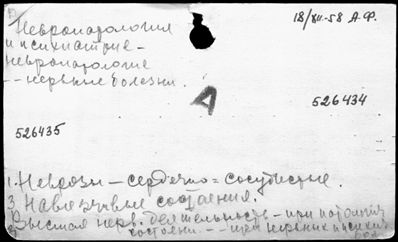 Невропатология
18/XII-58 А.Ф.
и психиатрие -
невропатологие
-- нервные болезни.
А
526434
526435
1. Неврозы - сердечно = сосудистые.
3. Навязчивые состояния.
2) Высшая нерв. деятельность - при патологич
состояни. -- при нервных и психич
бол.